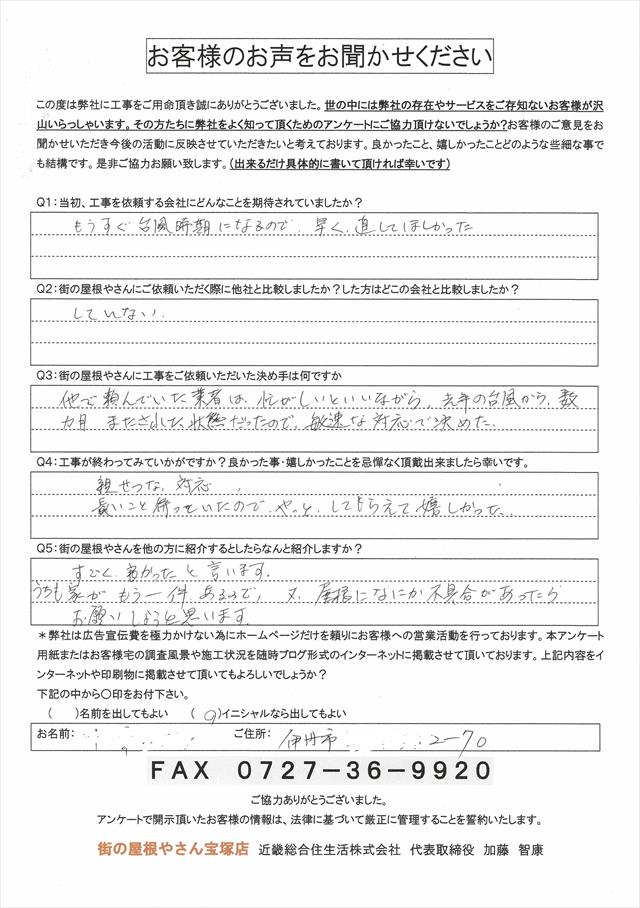 お客様のお声をお聞かせください
この度は弊社に工事をご用命頂き誠にありがとうございました。世の中には弊社の存在やサービスをご存知ないお客様が沢
山いらっしゃいます。その方たちに弊社をよく知って頂くためのアンケートにご協力頂けないでしょうか?お客様のご意見をお
聞かせいただき今後の活動に反映させていただきたいと考えております。良かったこと、嬉しかったことどのような些細な事で
も結構です。是非ご協力お願い致します。(出来るだけ具体的に書いて頂ければ幸いです)
Q1:当初、工事を依頼する会社にどんなことを期待されていましたか?
もうすぐ台風時期になるので、早く、直してほしかった
Q2:街の屋根やさんにご依頼いただく際に他社と比較しましたか?した方はどこの会社と比較しましたか?
していない。
Q3:街の屋根やさんに工事をご依頼いただいた決め手は何ですか
他で頼んでいた業者は、忙がしいといいながら、去年の台風から、数
カ月 またされた状態だったので、敏速な対応で決めた。
Q4:工事が終わってみていかがですか?良かった事・嬉しかったことを忌憚なく頂戴出来ましたら幸いです。
親せつな、対応、
長いこと待っていたので、やっと、してもらえて嬉しかった。
Q5:街の屋根やさんを他の方に紹介するとしたらなんと紹介しますか?
すごく、良かったと言います。
うちも家がもう一件あるので、又、屋根になにか不具合があったら
お願いしようと思います。
*弊社は広告宣伝費を極力かけない為にホームページだけを頼りにお客様への営業活動を行っております。本アンケート
用紙またはお客様宅の調査風景や施工状況を随時ブログ形式のインターネットに掲載させて頂いております。上記内容をイ
ンターネットや印刷物に掲載させて頂いてもよろしいでしょうか?
下記の中から〇印をお付下さい。
( )名前を出してもよい ( ○)イニシャルなら出してもよい
お名前: ご住所: 伊丹市 2-70
FAX 0727-36-9920
ご協力ありがとうございました。
アンケートで開示頂いたお客様の情報は、法律に基づいて厳正に管理することを誓約いたします。
街の屋根やさん宝塚店 近畿総合住生活株式会社 代表取締役 加藤 智康